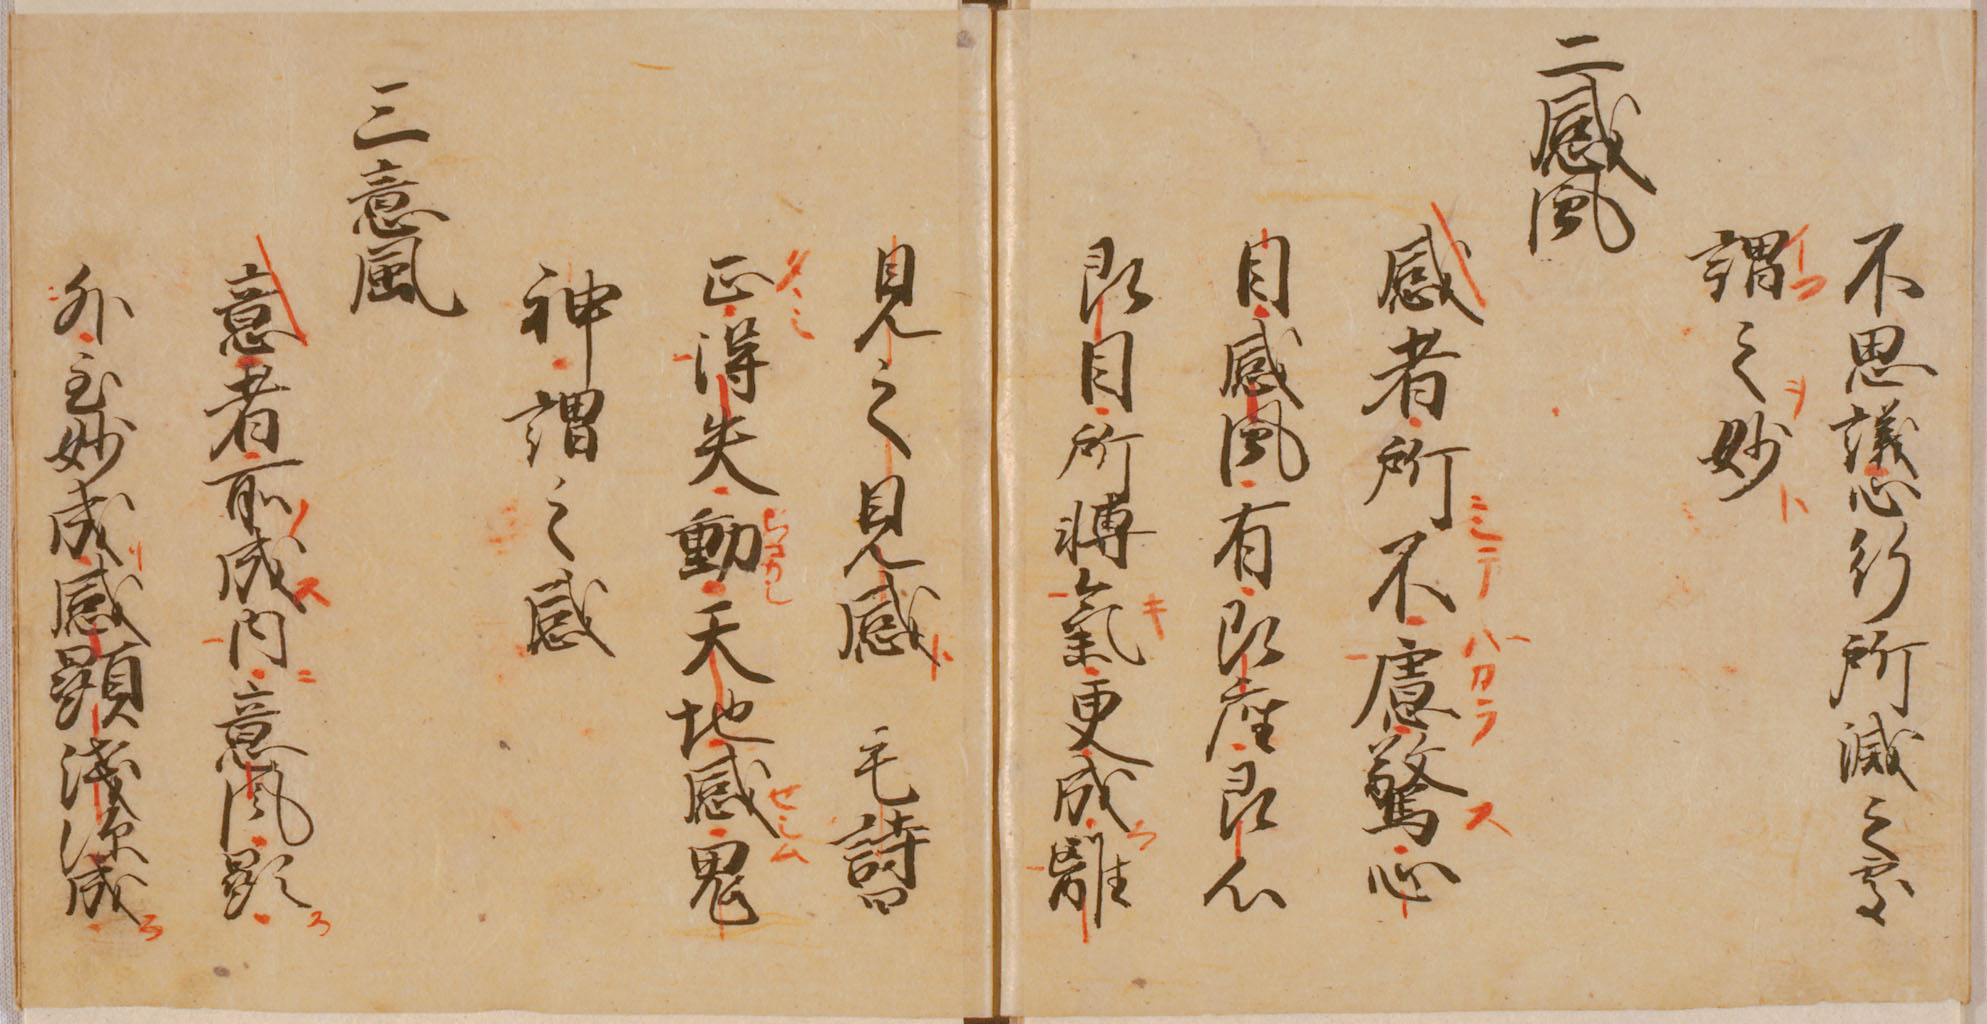 不思議心行所滅之處
謂之妙
二感風
感者所不慮驚心
目感風有即座即心
即目所轉氣更成離
見之見感　毛詩曰
正得失動天地感鬼
神謂之感
三意風
意者所成内意風顕
外至妙成感顕浅深成